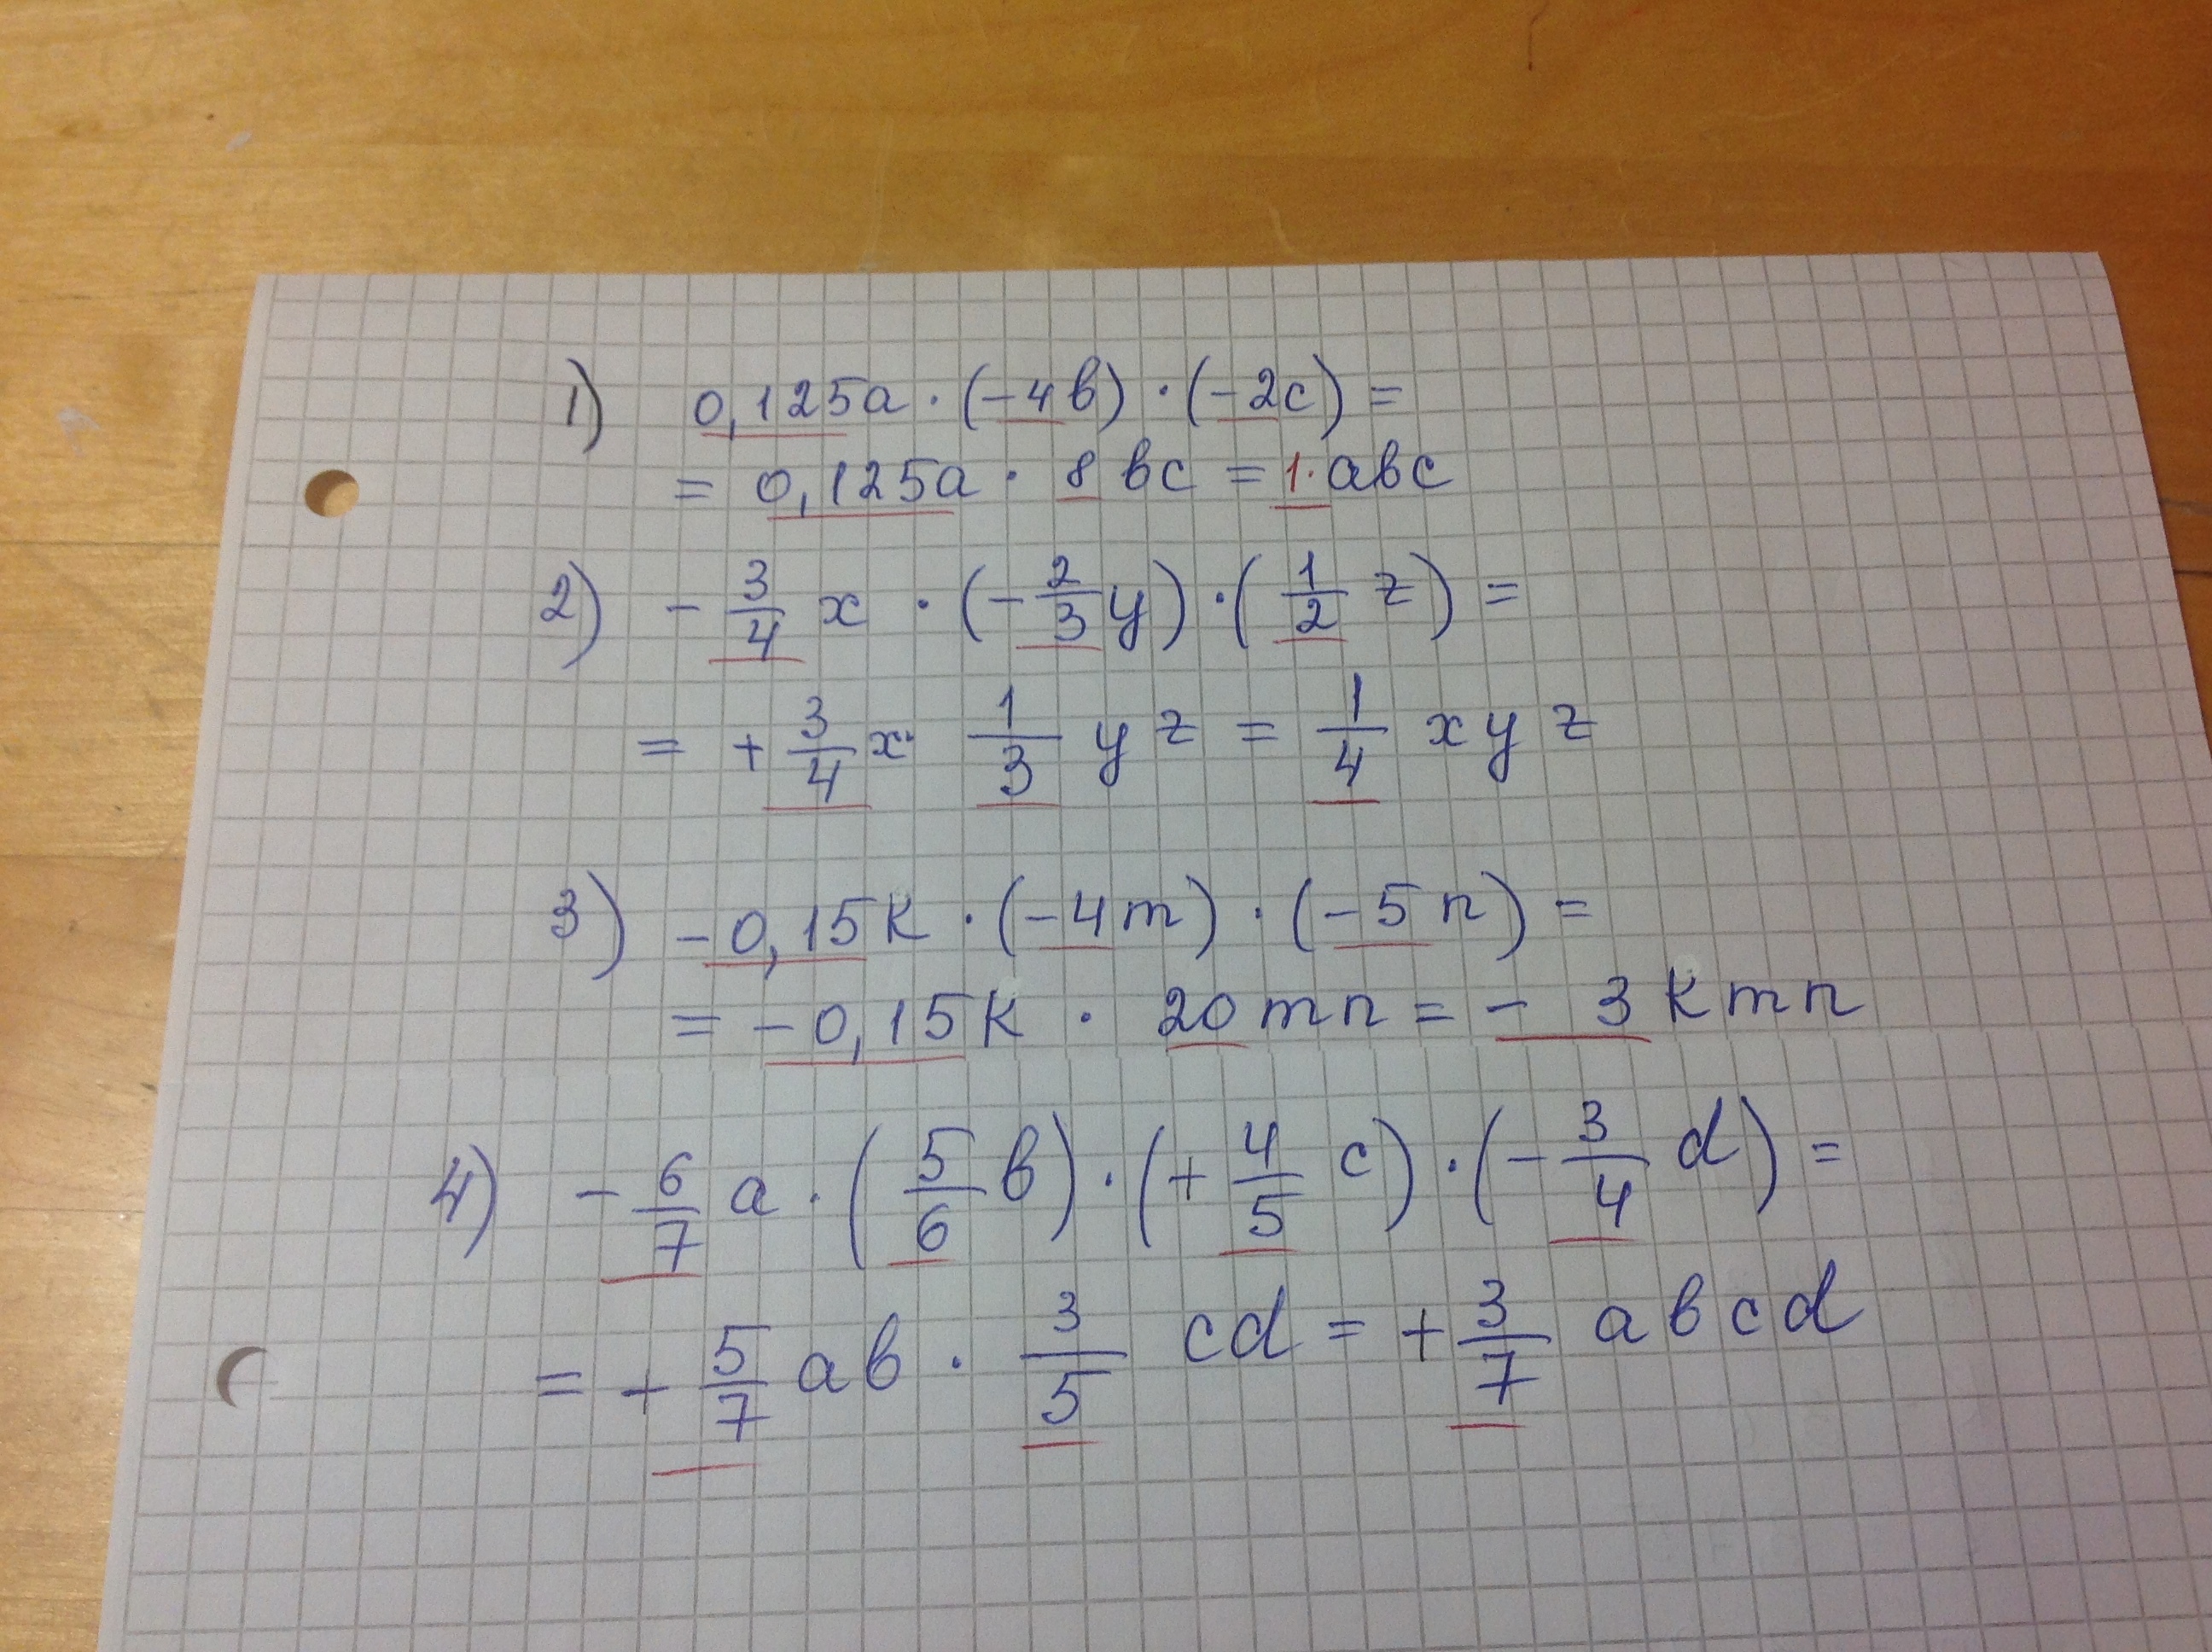 1) 0,125a · (-4b) · (-2c) =
= 0,125a · 8 bc = 1·abc
2) - 3/4 x · (-2/3 y) · (1/2 z) =
= + 3/4 x · 1/3 y z = 1/4 x y z
3) -0,15k · (-4m) · (-5n) =
= -0,15k · 20mn = - 3kmn
4) - 6/7 a · (5/6 b) · (+ 4/5 c) · (- 3/4 d) =
= + 5/7 ab · 3/5 cd = + 3/7 abcd